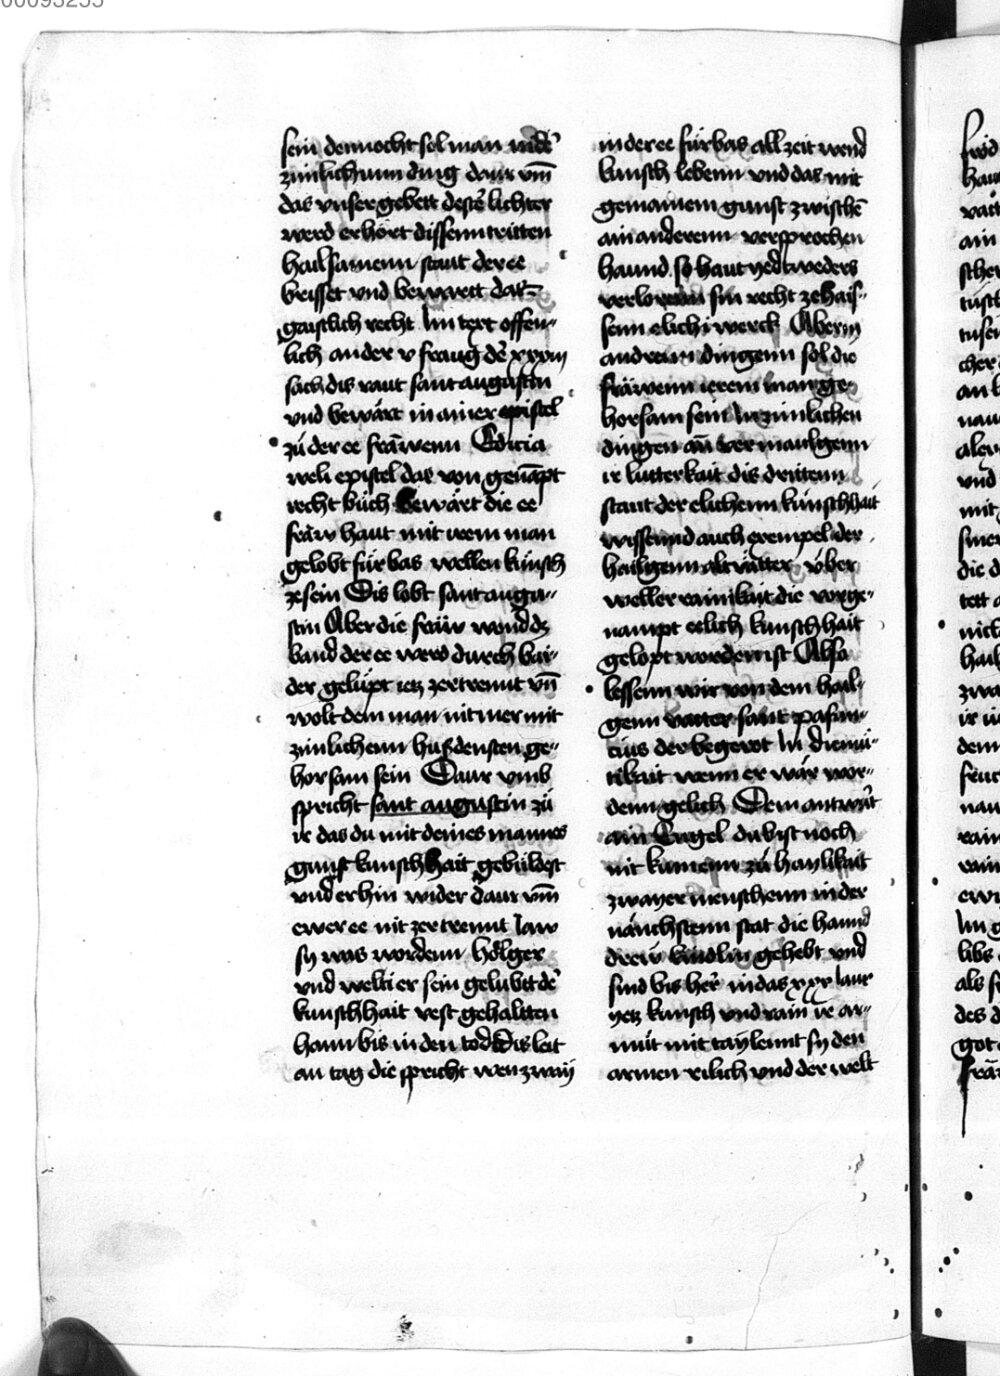 00093255
sein dennocht sol man in dē
zimlichnun ding daur vm̄
das vnser gebett destē lichter
werd erhört dissenn tritten
hailsamenn staut der ee
brisset vnd bewärt das
gaistlich recht Im text offen-
lich an der v fraug dē xxxiij
sach dis raut sant augustin
vnd bewärt in ainer epistel
zü der ee frawenn Edicia
weli epistel das von genāpt
recht büch bewärt die ee
fraw haut mit irem man
gelobt fürbas wellen künsch
ze sein Dis lobt sant augu-
stin Aber die fraw wond dz
band der ee werd durch bai-
der gelüpt ietz zertrennt vn̄
wolt dem man nit mer mit
zimlichenn husdensten ge-
horsam sein Daur vmb
spricht sant augustin zü
ir das du mit deines mannes
gunst kunschhait gebüldest
vnd erhin wider daur vm̄
ewer ee nit zertrennt Jaw
sy was wordenn hölger
vnd welti er sein gelubtt dē
kunschhait vest gehaltten
hann bis in den tod Dis leit
an tag die spricht wen zwaÿ
in der ee fürbas all zeit wend
künsch lebenn vnd das mit
gemainem gunst zwischē
ain anderenn versprochen
haund so haut yedtweders
verlorenn sin recht ze hais-
senn elichi werck Aber in
andrenn dingenn sol die
fräwenn ierem man ge-
horsam sein In zimlichen
dingen an vermaulgenn
ir lutterkait dis drittenn
staut der elichenn künschhait
wissennd auch exempel der
hailgenn altvätter über
weller rainikait die vorge-
nampt eelich kunschhait
gelopt worden ist Also
lessenn wir von dem hail-
genn vatter sant pafun-
cius der begerot In diemü-
tikait wenn er wär wor-
denn gelich Dem antwurt
ain Engel du bist noch
nit kumenn zü haylikait
zwayer menschenn in der
nauchstenn stat die haund
drew kindlin gehebt vnd
sind bis her in das xxx iaur
yetz künsch vnd rain ir ar-
müt mit taylennt sy den
armen rilich vnd der welt